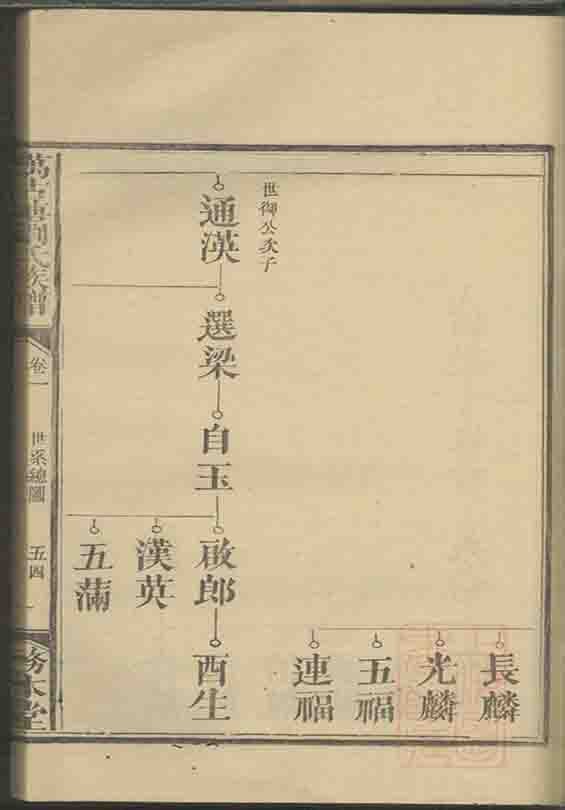 長麟
光麟
五福
連福
世御公次子
通漢
選梁
自玉
啟郎
酉生
漢英
五滿
萬劉氏族譜
卷一
世系總圖
五四
務本堂